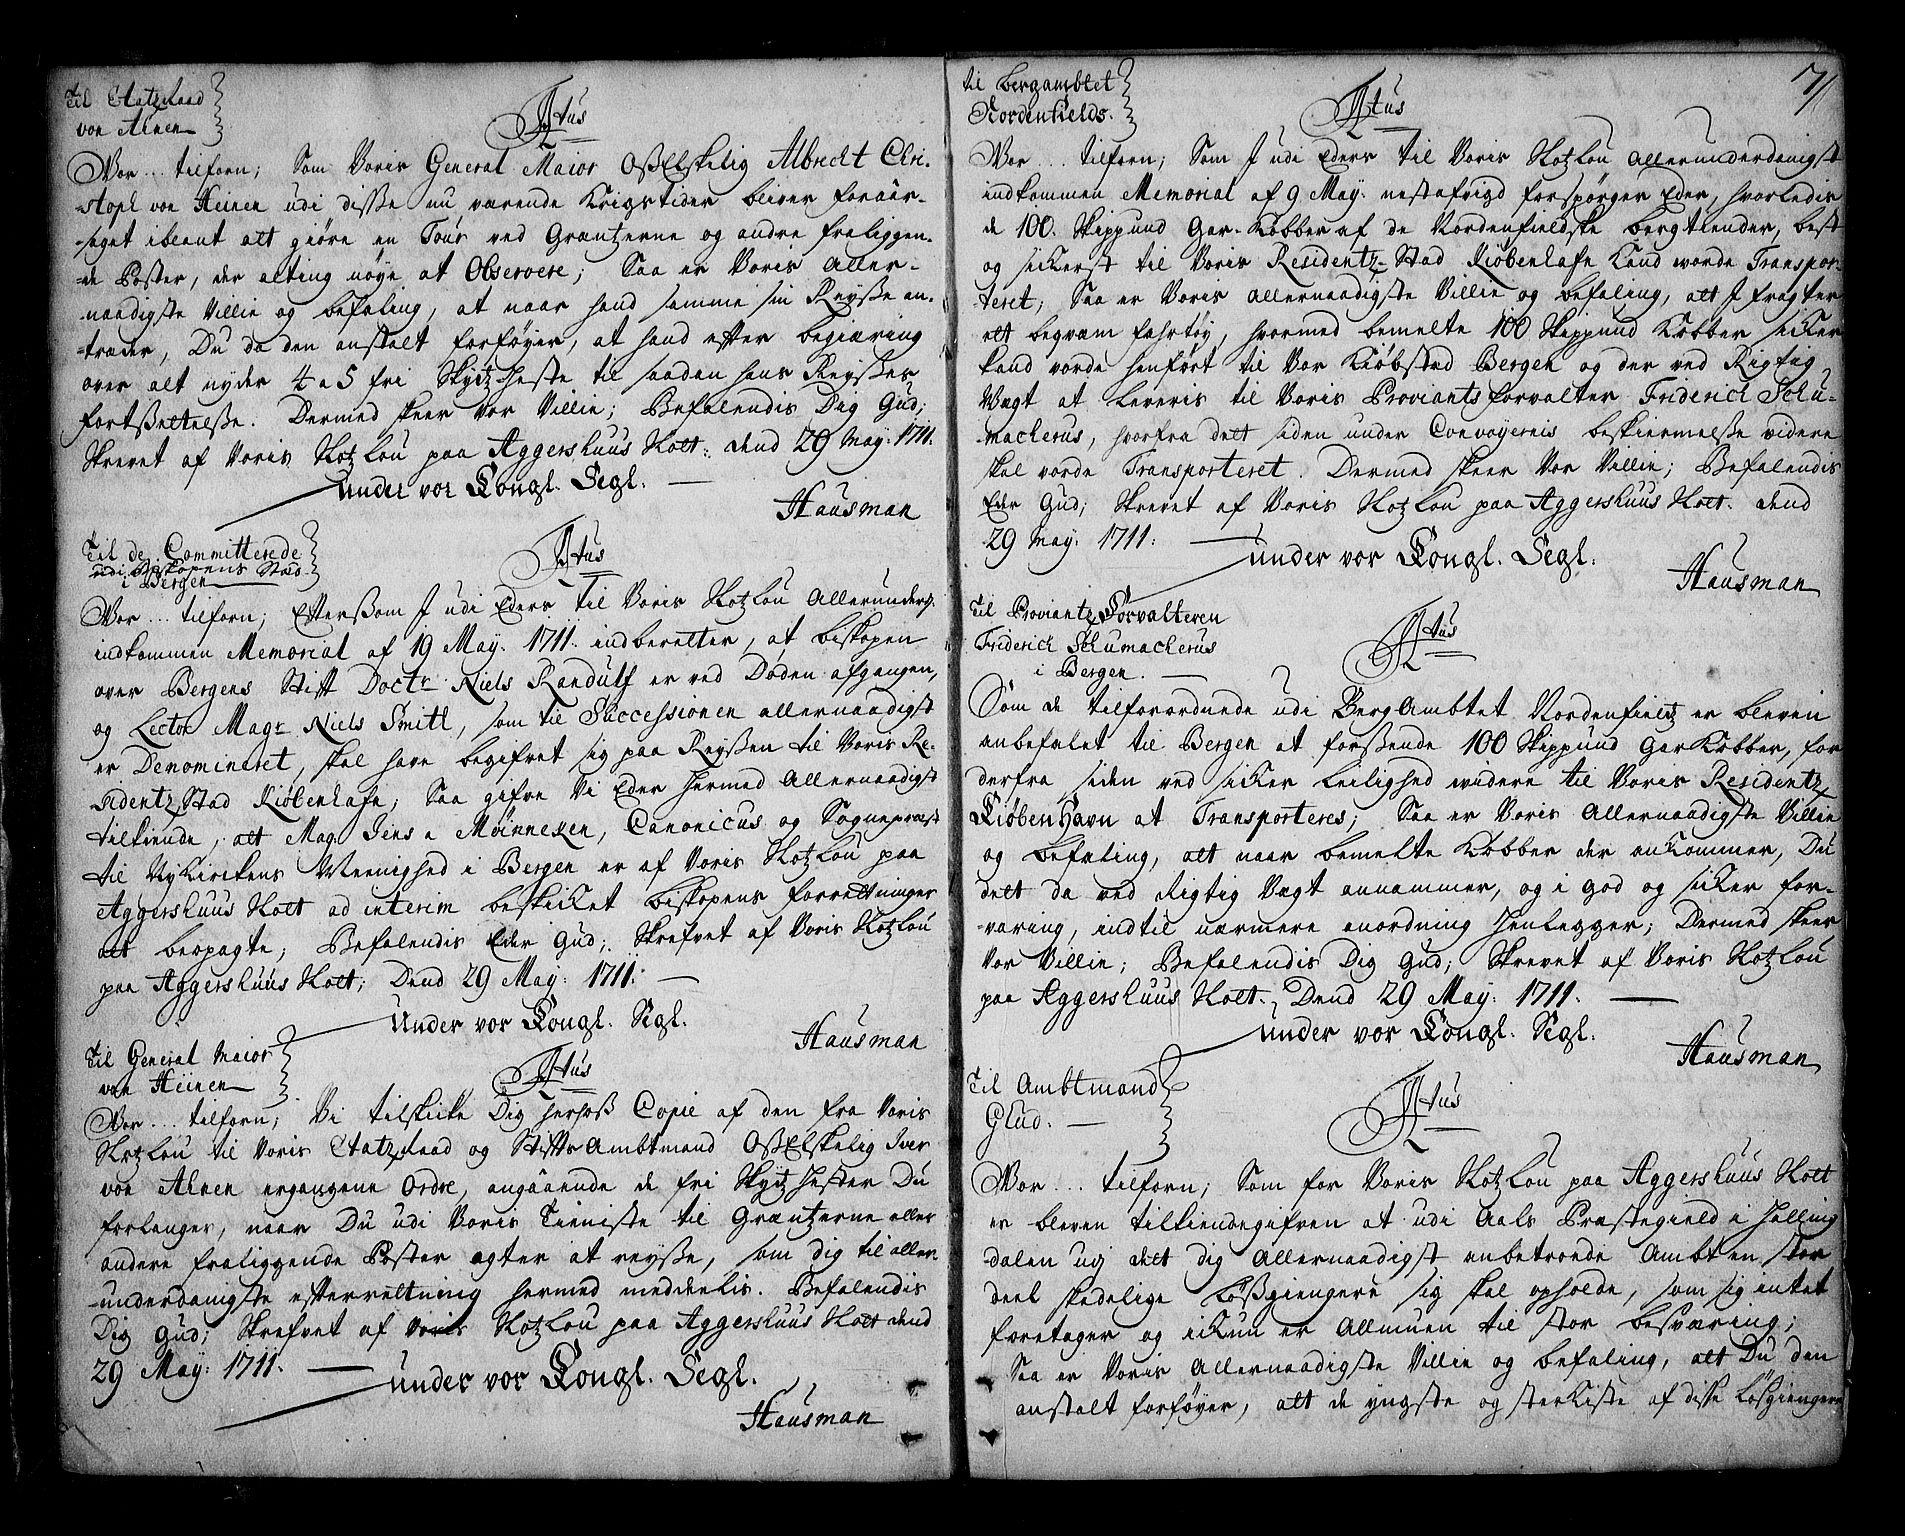 Til Etatzraad
von Ahnen
F4tus
Vor... tilforn; Som Voris General Maior OßElskelig Albrecht Chri-
stoph von Heinen udi disse nu værende Krigstider bliver foraar-
saget iblant att giøre en Tour ved Grantzerne og andre fraliggen-
de Poster, der alting nøye at Observere; Saa er Voris Aller-
naadigste Villie og befaling, at naar hand samme sin Reyße an-
træder, Du da den anstalt forføyer, at hand efter begiæring
over alt nyder 4 a 5 fri Skytz Heste til saadan hans Reyßes
fortsettelße. Dermed skeer vor Villie; Befalendis Dig Gud;
Skrevet af Voris Slotzlou paa Aggershuus Slott: dend 29 May: 1711.
under vor Kongl. Segl.
Hausman
Til de Committerede
udi Biskopens Stæd
i Bergen
F4tus
Vor... tilforn; Eftersom I udi Eders til Voris Slotzlou Allerunderd.
indkommen Memorial af 19 May. 1711. indberetter, at biskopen
over Bergens Stift Doctr Niels Randulf er ved Døden afgangen,
og Lector Magr Niels Smith, som til Successionen allernaadigst
er Denomineret, skal have begifvet sig paa Reyßen til Voris Re-
sidentz Stad Kiøbenhafn; Saa gifve Vi Eder hermed Allernaadigst
tilkiende, att Mag. Jens a Møinnexen, Canonicus og Sognepræst
til Nykirkens Meenighed i Bergen er af Voris Slotzlou paa
Aggershuus Slott ad interim beskicket biskopens forretninger
att beopagte; Befalendis Eder Gud; Skrefvet af Voris Slotzlou
paa Aggershuus Slott; Dend 29 May: 1711:
Under vor Kongl. Segl.
Hausman
Til General Maior
von Heinen
F4tus
Vor... tilforn; Vi tilskicke Dig herhoß Copie af den fra Voris
Slotzlou til Voris Etatzraad og StiftsAmbtmand OßElskelig Iver
von Ahnen ergangene Ordre, angaaende de fri Skytz Hester Du
forlanger, naar Du udi Voris Tieniste til Græntzerne eller
andere fraliggende Poster agter at reyße, som dig til aller-
underdanigste efterretning hermed meddeelis. Befalendis
Dig Gud; Skrefvet af Voris Slotzlou paa Aggershuus Slott dend
29 May: 1711.
under vor Kongl. Segl.
Hausman
71
til bergambtet
Nordenfields.
F4tus
Vor... tilforn; Som I udi Eders til Voris Slotzlou allerunderdanigst
indkommen Memorial af 9 May. nestafvigd forspørger Eder, hvorledis
de 100. Skippund Gar-Kobber af de Nordenfieldske bergtlender, best
og sikerst til Voris Residentz-Stad Kiøbenhafn kand worde Transpor-
teret; Saa er Voris allernaadigste Villie og befaling, att I fragter
ett beqvæm fahrtøy, hvormed bemelte 100 Skippund Kobber sicker
kand vorde henført til Vor Kiøbsted Bergen og der ved Rigtig
Vægt at leveris til Voris Proviantsforvalter Friderich Schu-
macherus, hvorfra dett siden under Convoyernis beskiermelße videre
skal vorde Transporteret. Dermed skeer Vor Villie; Befalendis
Eder Gud; Skrevet af Voris Slotzlou paa Aggershuus Slott. dend
29 May: 1711:
under vor Kongl. Segl.
Hausman
Til Proviantz Forvalteren
Friderich Schumacherus
i Bergen.
F4tus
Som de tilforordnede udi BergAmbtet Nordenfieldz er bleven
anbefalet til Bergen at forßende 100 Skippund Gar Kobber, for
derfra siden ved sicker leilighed widere til Voris Residentz
Kiøbenhavn at Transporteres; Saa er Voris Allernaadigste Villie
og befaling, att naar bemelte Kobber der ankommer, Du
dett da ved Rigtig Vægt annammer, og i god og sicker for-
varing, indtil nærmere anordning henlegger; Dermed skeer
vor Villie; Befalendis Dig Gud; Skrevet af Voris Slotzlou
paa Aggershuus Slott. Dend 29 May: 1711.
under vor Kongl. Segl.
Hausman
Til Ambtmand
Glud.
F4tus
Vor... tilforn; Som for Voris Slotzlou paa Aggershuus Slott
er bleven tilkiendegifven at udi Aals Præstegield i Halling
dalen udj dett dig Allernaadigst anbetroede Ambt en stor
deel skadelige Lößgiengere sig skal opholde, som sig intet
foretager og ickun er Allmuen til stor besværing;
Saa er Voris Allernaadigste Villie og befaling, att Du den
anstalt forføyer, att de yngste og sterkiste af disse Løsgiengere